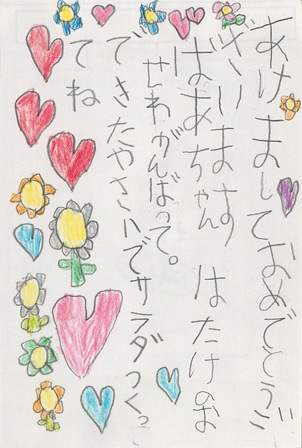 あけましておめでとうご
ざいます　はたけのお
ばあちゃん
せわがんばって。
できたやさいでサラダつくっ
てね